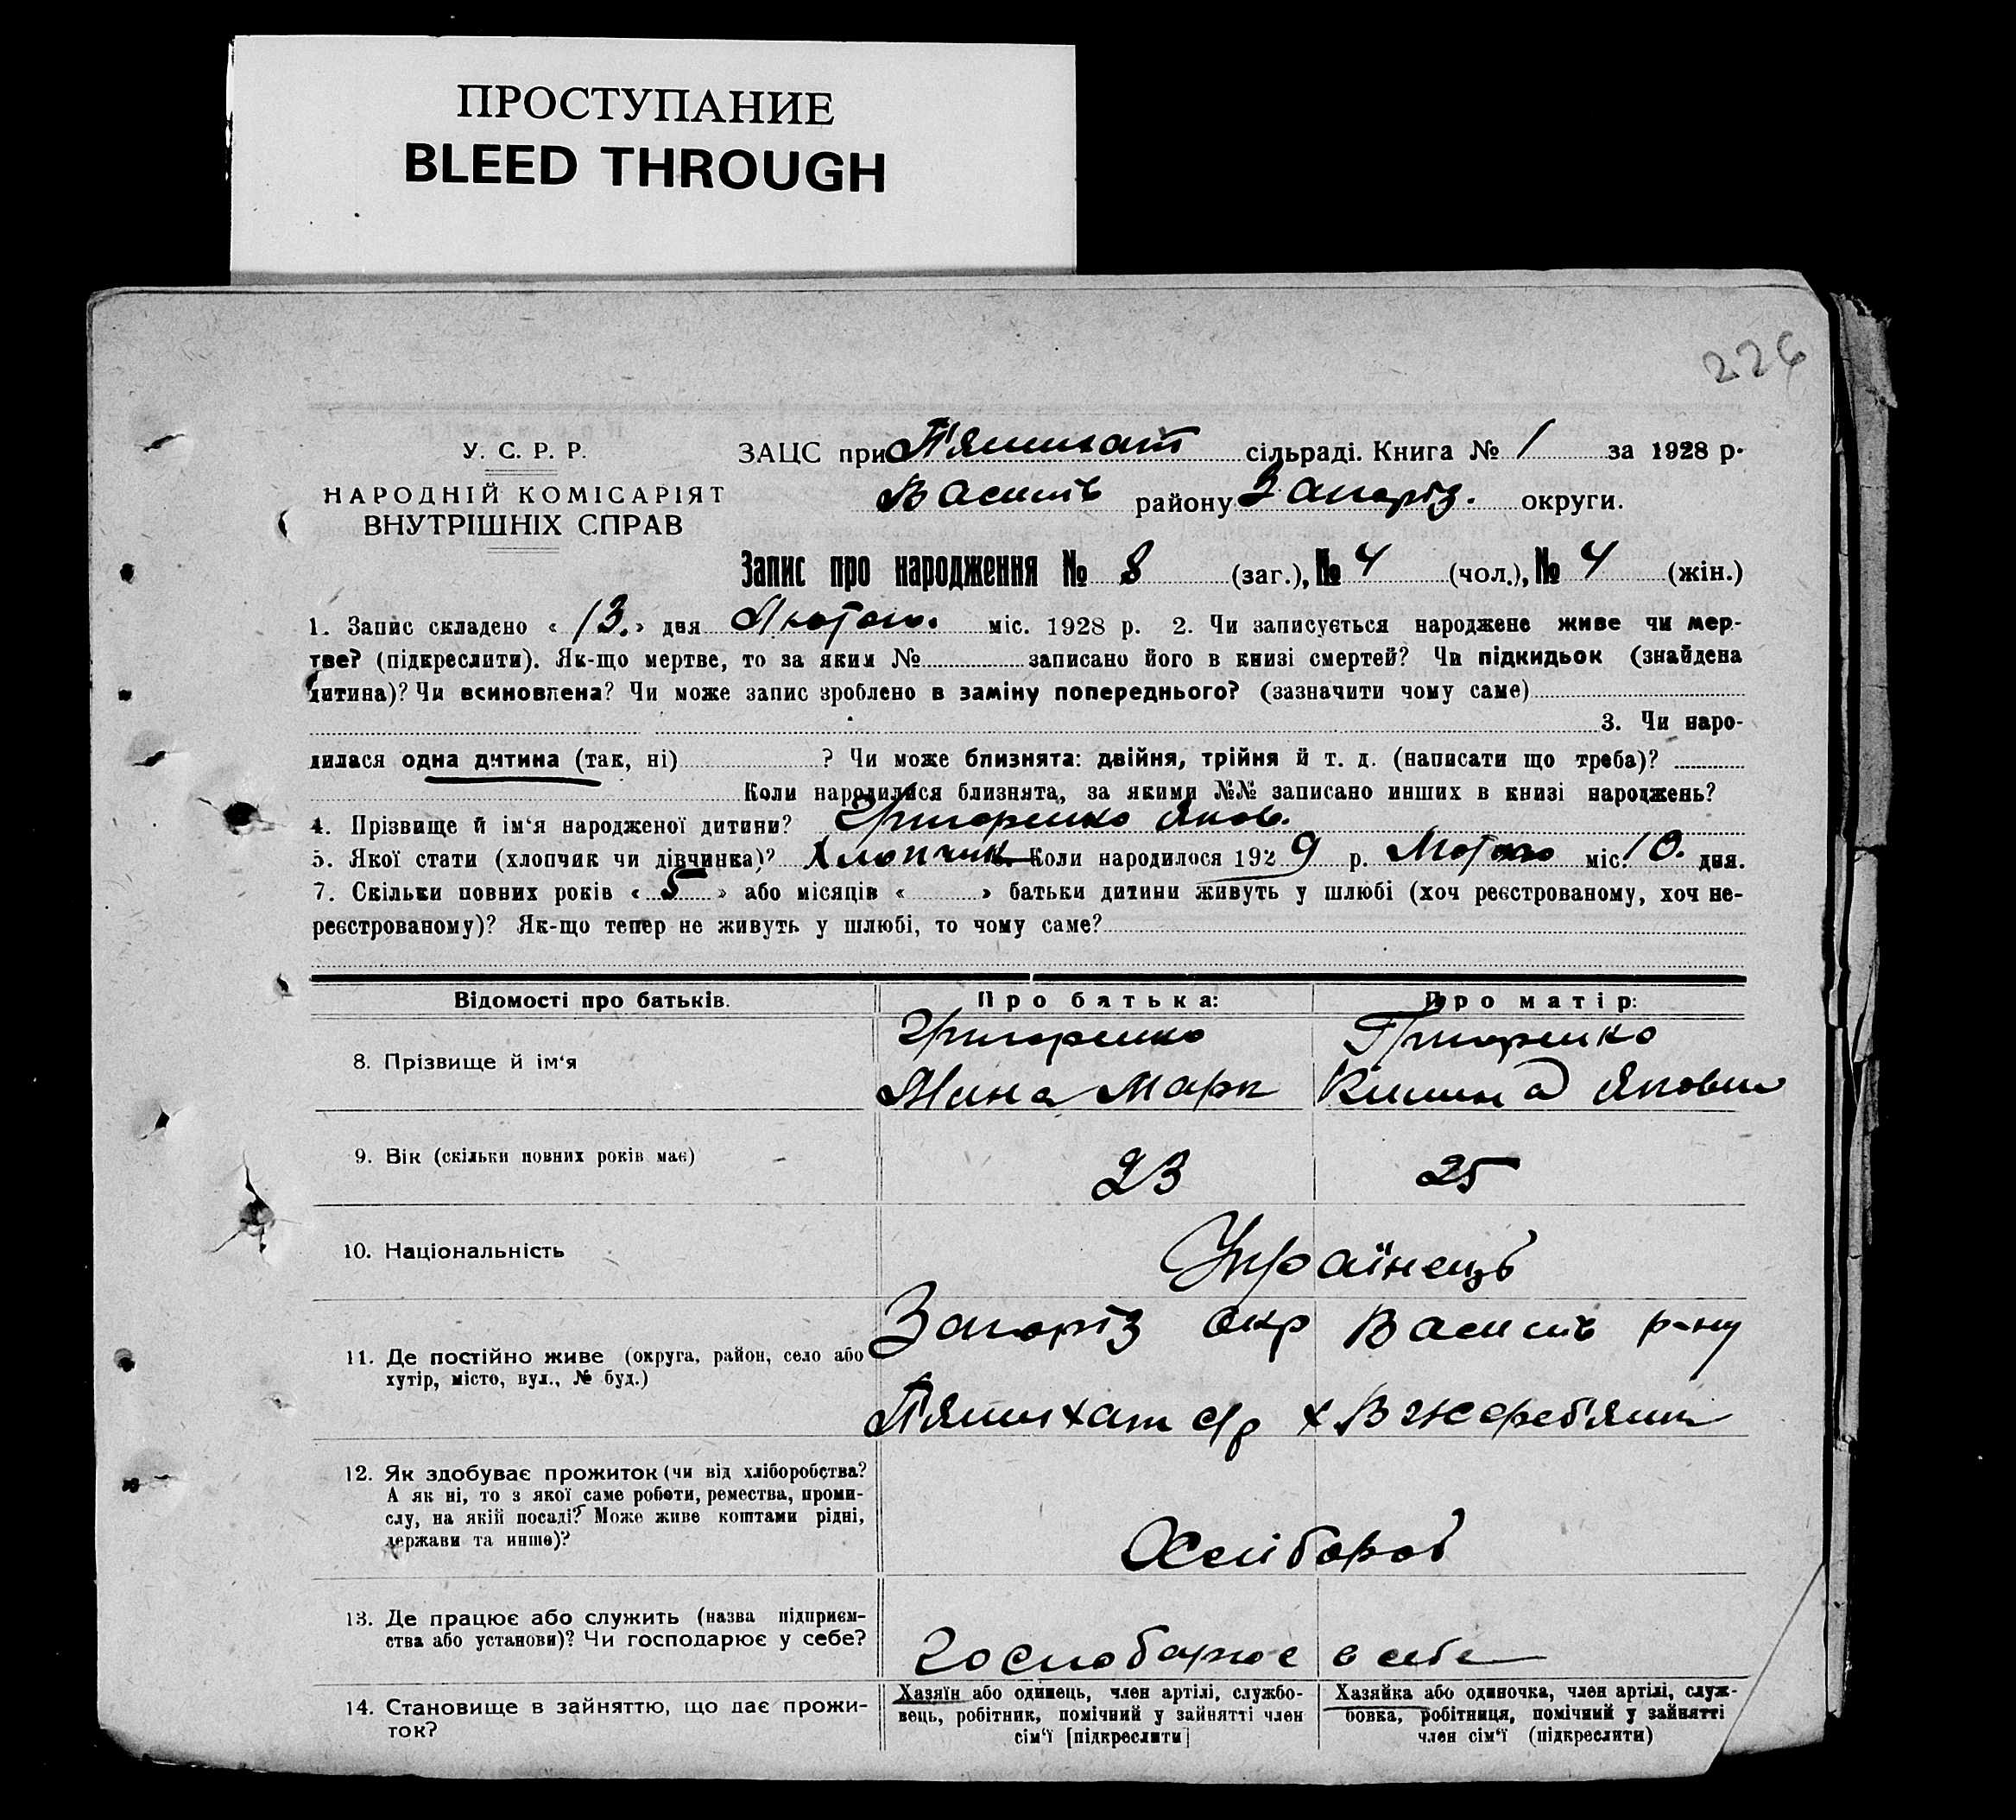 ПРОСТУПАНИЕ
BLEED THROUGH
226
У. С. Р. Р.
НАРОДНІЙ КОМІСАРІЯТ
ВНУТРІШНІХ СПРАВ
ЗАЦС при П'ятихат сільраді. Книга № 1 за 1928 р.
Василів району Запоріз. округи.
Запис про народження № 8 (заг.), № 4 (чол.), № 4 (жін.)
1. Запис складено « 13. » дня Лютого. міс. 1928 р. 2. Чи записується народжене живе чи мер-
тве? (підкреслити). Як-що мертве, то за яким № записано його в книзі смертей? Чи підкидьок (знайдена
дитина)? Чи всиновлена? Чи може запис зроблено в заміну попереднього? (зазначити чому саме)
3. Чи наро-
дилася одна дитина (так, ні) ? Чи може близнята: двійня, трійня й т. д. (написати що треба)?
Коли народилися близнята, за якими №№ записано инших в книзі народжень?
4. Прізвище й ім'я народженої дитини? Григоренко Яков.
5. Якої стати (хлопчик чи дівчинка)? Хлопчик Коли народилося 1929 р. Лютого міс. 10. дня.
7. Скільки повних років « 5 » або місяців « » батьки дитини живуть у шлюбі (хоч реєстрованому, хоч не-
реєстрованому)? Як-що тепер не живуть у шлюбі, то чому саме?
Відомості про батьків. Про батька: Про матір:
8. Прізвище й ім'я
Григоренко Григоренко
Мина Марк Яковл
9. Вік (скільки повних років має) 23 25
10. Національність Українець
11. Де постійно живе (округа, район, село або
хутір, місто, вул., № буд.)
Запоріз окр Василів р-ну
П'ятихат с/р х В Жереб'янк
12. Як здобуває прожиток (чи від хліборобства?
А як ні, то з якої саме роботи, ремества, проми-
слу, на якій посаді? Може живе коштами рідні,
держави та инше)?
Хлібороб
13. Де працює або служить (назва підприєм-
ства або установи)? Чи господарює у себе?
господарює в себе
14. Становище в зайняттю, що дає прожи-
ток?
Хазяїн або одинець, член артілі, службо-
вець, робітник, помічний у зайнятті член
сім'ї [підкреслити]
Хазяйка або одиночка, член артілі, служ-
бовка, робітниця, помічний у зайнятті
член сім'ї (підкреслити)